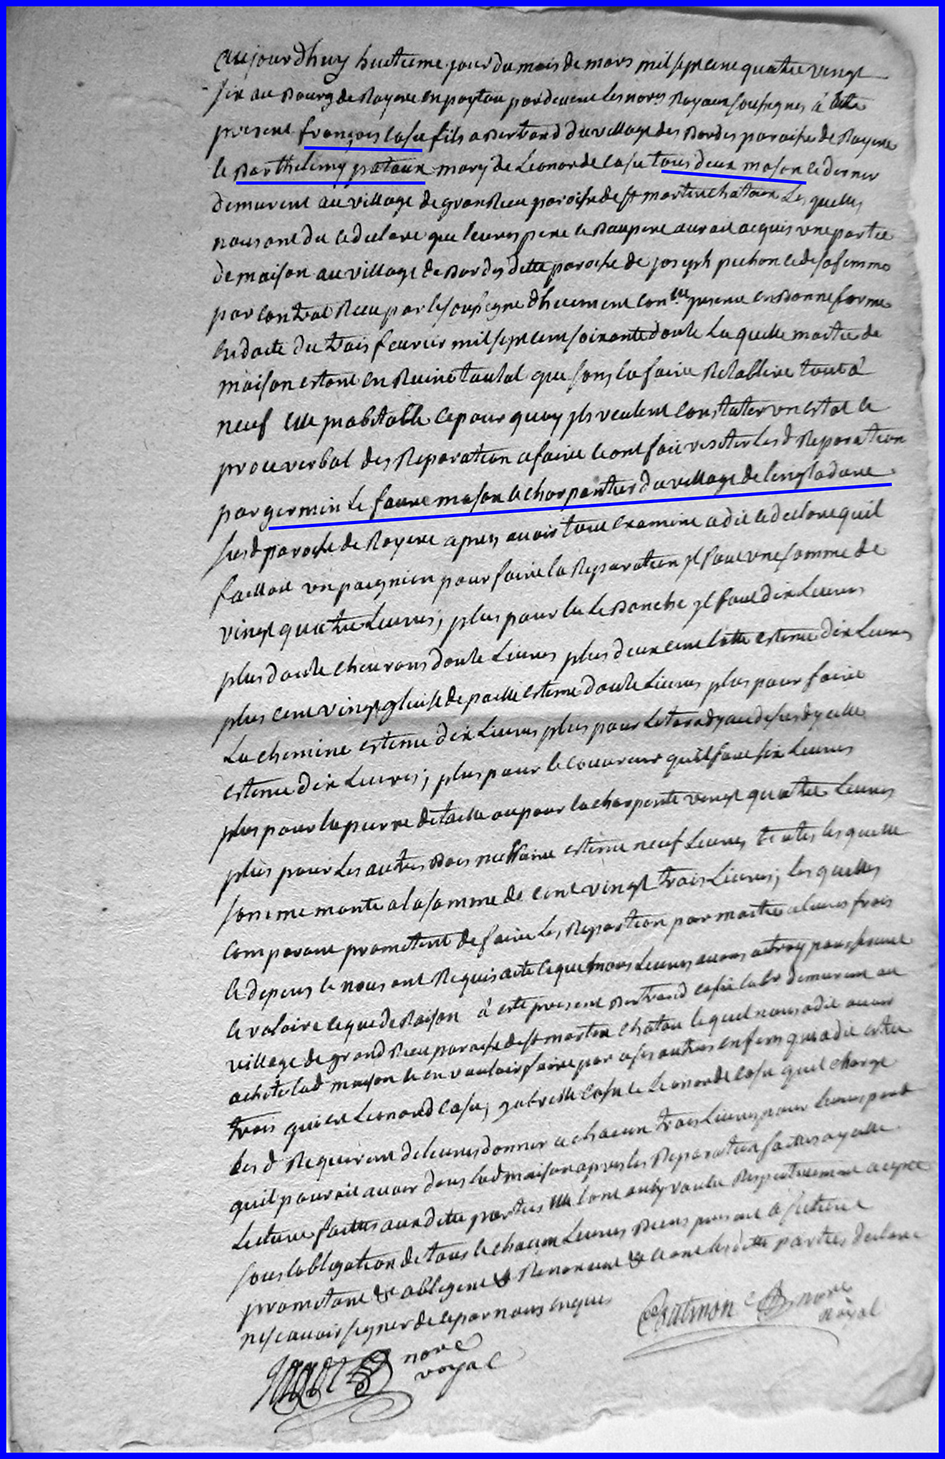 aujourdhuy huitieme jour du mois de mars mil sept cent quatre vingt
six au Bourg de Royere en poytou pardevant les nores Royaux soussignes à este
present françois Casu fils a Bertrand du village des Bordes paroisse de Royere
le Barthelemy pataux mary de Leonorde Casu tous deux mason le dernier
demurent au village de grand Rieu paroisse de st martin chataux Les quelles
nous ont dit et declare que leurs pere et Baupere auroit acquis une partie
de maison au village de Bordes ditte paroisse de joseph pichon et de sa femme
par contrat Recu par le soussigne dheument con.lle presme en Bonne forme
en datte du trois feuvrier mil sept cent soixante douse La quelle moitie de
maison estant en Ruine totalal que sans la faire Retablire tout à
neuf elle inabitable cepourquoy jls veulent constater un estat et
proceverbal des Reparation a faire et ont fait visiter les d Reparation
par germin Le faure mason et charpantier du village de Langladure
susd paroisse de Royere apres avoir tout examine a dit et declare quil
failloit un paignion pour faire la Reparation jl faut une somme de
vingt quatre Livres; plus pour la Blanche jl faut dix Livres
plus douse cheurons douse Livres plus deux cent latte estime dix Livres
plus cent vingt gluis de paille estime douse Livres plus pour faire
La chemine estime dix Livres plus pour Le torady au desus dycelle
estime dix Livres; plus pour le couvreur quil faut six Livres
plus pour la pierre de taille ou pour la charpente vingt quatre Livres
plus pour Les autres Bois nessaire estime neuf Livres toutes lesquelle
somme monte a la somme de cent vingt trois Livres; les quelles
comparant promettent de faire Les Reparation par moitie a leurs frois
et depens et nous ont Requis acte ce que nous Leurs avons octroy pour servir
et valoire ce que de Raison à este present Bertrand Casu labr demurent au
village de grand Rieu paroisse de st martin chatau lequel nous a dit avoir
achete lad maison et en vouloir faire par a ses autres enfens qui a dit estre
trois qui est Leonard Casu; gabrielle Casu et Leonorde Casu quil charge
Les d Requerent de leurs donner a chacun trois Livres pour leurs part
quil pourroit avoir dans lad maison apres les Reparation faites a ycelle
Lecture faittes aux ditte parties elle l'ont ainsy voulu Respectivement accepte
sous l'obligation de tous et chacun Leurs Biens present à future
promettant &c obligent &c Renoncent &c et ont les ditte parties declare
ne scavoir signer de ce par nous enquis
Chatmon nore
Royal
nore
royal